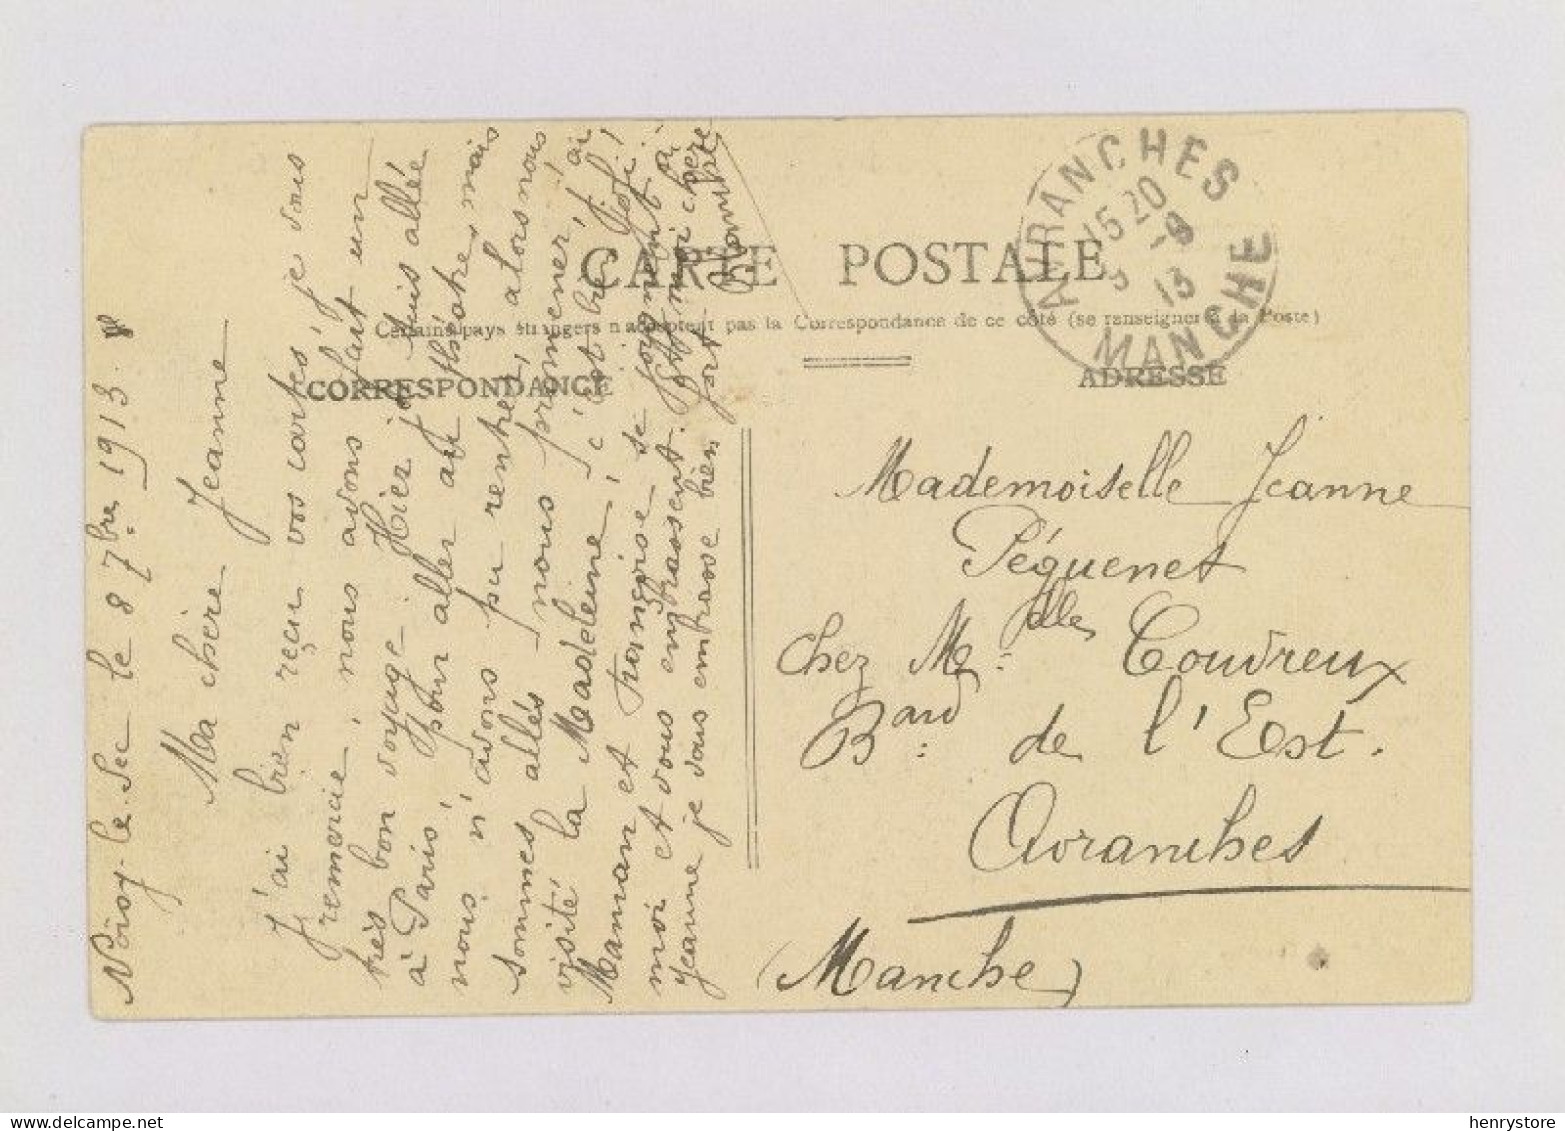 CARTE POSTALE
Certains pays étrangers n'acceptent pas la Correspondance de ce côté (se renseigner à la Poste)
CORRESPONDANCE
ADRESSE
Noisy-le-Sec le 8 7bre 1913
Ma chère Jeanne
J'ai bien reçu vos cartes je vous
remercie, nous avons fait un
très bon voyage. Hier je suis allée
à Paris pour aller au théâtre mais
nous n'avons pu rentrer, alors nous
sommes allés nous promener, j'ai
visité la Madeleine, c'est très joli!
Maman et Françoise se joignent à
moi et vous embrassent. Et moi chère
Jeanne je vous embrasse bien fort
AVRANCHES
15 20
8 - 9
13
MANCHE
Mademoiselle Jeanne
Péguenet
chez Melles Coudreux
Bard de l'Est.
Avranches
(Manche)
henrystore